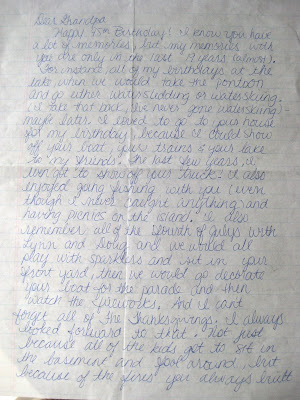 Dear Grandpa,
Happy 75th Birthday! I know you have
a lot of memories, but my memories with
you are only in the last 19 years (almost).
For instance all of my birthdays at the
lake, when we would take the pontoon
and go either watersledding or waterskiing.
(I take that back, I've never gone waterskiing)-
maybe later. I loved to go to your house
for my birthday because I could show
off your boat, your trains & your lake
to my friends. The last few years, I
even got to show off your truck. I also
enjoyed going fishing with you (even
though I never caught anything) and
having picnics on the island. I also
remember all of the Fourth of Julys with
Lynn and Doug and we would all
play with sparklers and sit in your
front yard, then we would go decorate
your boat for the parade and then
watch the fireworks. And I can't
forget all of the Thanksgivings. I always
looked forward to that. Not just
because all of the kids got to sit in
the basement and fool around, but
because of the fires you always built